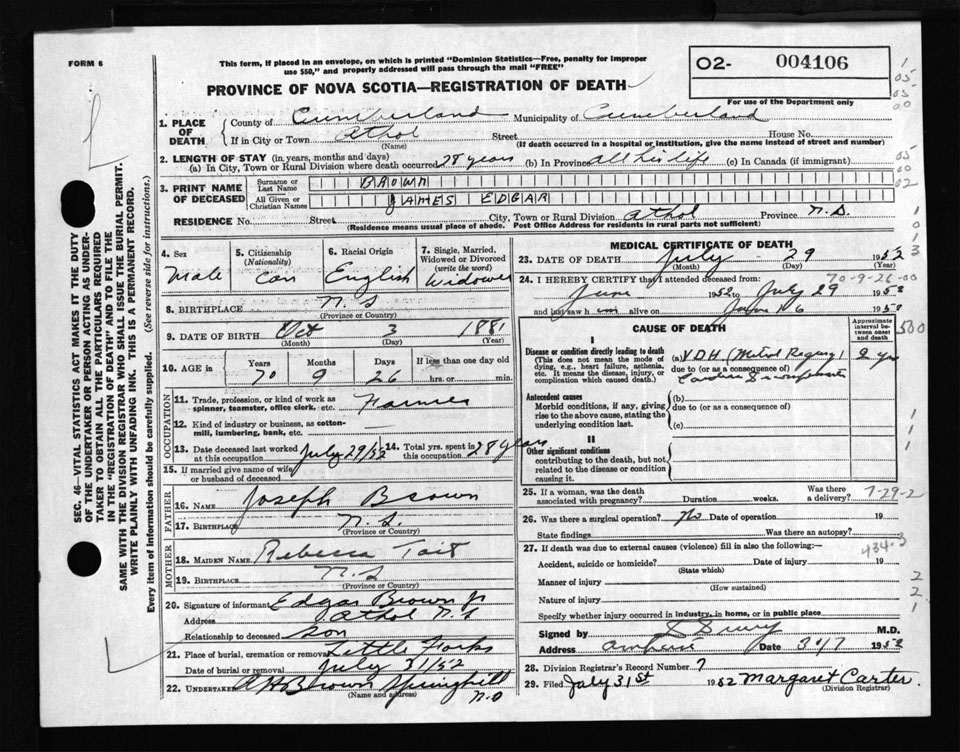 FORM 6
This form, if placed in an envelope, on which is printed "Dominion Statistics—Free, penalty for improper
use $50," and properly addressed will pass through the mail "FREE"
O2- 004106
PROVINCE OF NOVA SCOTIA—REGISTRATION OF DEATH
For use of the Department only
1. PLACE OF DEATH County of Cumberland Municipality of Cumberland
If in City or Town Athol Street House No.
(Name) (If death occurred in a hospital or institution, give the name instead of street and number)
2. LENGTH OF STAY (in years, months and days)
(a) In City, Town or Rural Division where death occurred 28 years (b) In Province all his life (c) In Canada (if immigrant)
3. PRINT NAME OF DECEASED Surname or Last Name BROWN
All Given or Christian Names JAMES EDGAR
RESIDENCE No. Street City, Town or Rural Division Athol Province N.S.
(Residence means usual place of abode. Post Office Address for residents in rural parts not sufficient)
4. Sex Male
5. Citizenship (Nationality) Can
6. Racial Origin English
7. Single, Married, Widowed or Divorced (write the word) Widower
8. BIRTHPLACE N.S
(Province or Country)
9. DATE OF BIRTH Oct 3 1881
(Month) (Day) (Year)
10. AGE in Years Months Days If less than one day old
70 9 26 hrs. or min.
OCCUPATION
11. Trade, profession, or kind of work as spinner, teamster, office clerk, etc. Farmer
12. Kind of industry or business, as cotton-mill, lumbering, bank, etc.
13. Date deceased last worked at this occupation July 29/52
14. Total yrs. spent in this occupation 28 years
15. If married give name of wife or husband of deceased
FATHER
16. Name Joseph Brown
17. Birthplace N.S.
(Province or Country)
MOTHER
18. Maiden Name Rebecca Tait
19. Birthplace N.S
(Province or Country)
20. Signature of informant Edgar Brown Jr
Address Athol N.S
Relationship to deceased son
21. Place of burial, cremation or removal Little Forks
Date of burial or removal July 31/52
22. Undertaker Brown Springhill
(Name and address) N.S
MEDICAL CERTIFICATE OF DEATH
23. DATE OF DEATH July 29 1952
(Month) (Day) (Year)
24. I HEREBY CERTIFY that I attended deceased from: 70-9-26-00
June 1952 to July 29 1952
and last saw h alive on June 1952
CAUSE OF DEATH
Approximate interval between onset and death
I
Disease or condition directly leading to death
(This does not mean the mode of dying, e.g., heart failure, asthenia, etc. It means the disease, injury, or complication which caused death.)
(a) V.D.H (Mitral Regurg)
due to (or as a consequence of)
Antecedent causes
Morbid conditions, if any, giving rise to the above cause, stating the underlying condition last.
(b)
due to (or as a consequence of)
(c)
II
Other significant conditions
contributing to the death, but not related to the disease or condition causing it.
25. If a woman, was the death associated with pregnancy? Duration weeks. Was there a delivery? 7-29-2
26. Was there a surgical operation? No Date of operation 19
State findings Was there an autopsy?
27. If death was due to external causes (violence) fill in also the following:— 434-3
Accident, suicide or homicide? Date of injury 19
(State which)
Manner of injury
(How sustained)
Nature of injury
Specify whether injury occurred in industry, in home, or in public place
Signed by M.D.
Address Amherst Date 30/7 1952
28. Division Registrar's Record Number 7
29. Filed July 31st 1952 Margaret Carter
(Division Registrar)
SEC. 46—VITAL STATISTICS ACT MAKES IT THE DUTY
OF THE UNDERTAKER OR PERSON ACTING AS UNDER-
TAKER TO OBTAIN ALL THE PARTICULARS REQUIRED
IN THE "REGISTRATION OF DEATH" AND TO FILE THE
SAME WITH THE DIVISION REGISTRAR WHO SHALL ISSUE THE BURIAL PERMIT.
WRITE PLAINLY WITH UNFADING INK. THIS IS A PERMANENT RECORD.
Every item of information should be carefully supplied. (See reverse side for instructions.)